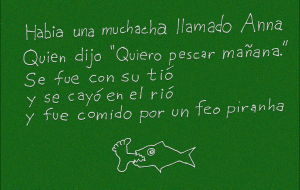 Habia una muchacha llamado Anna
Quien dijo "Quiero pescar mañana."
Se fue con su tió
y se cayó en el rió
y fue comido por un feo piranha